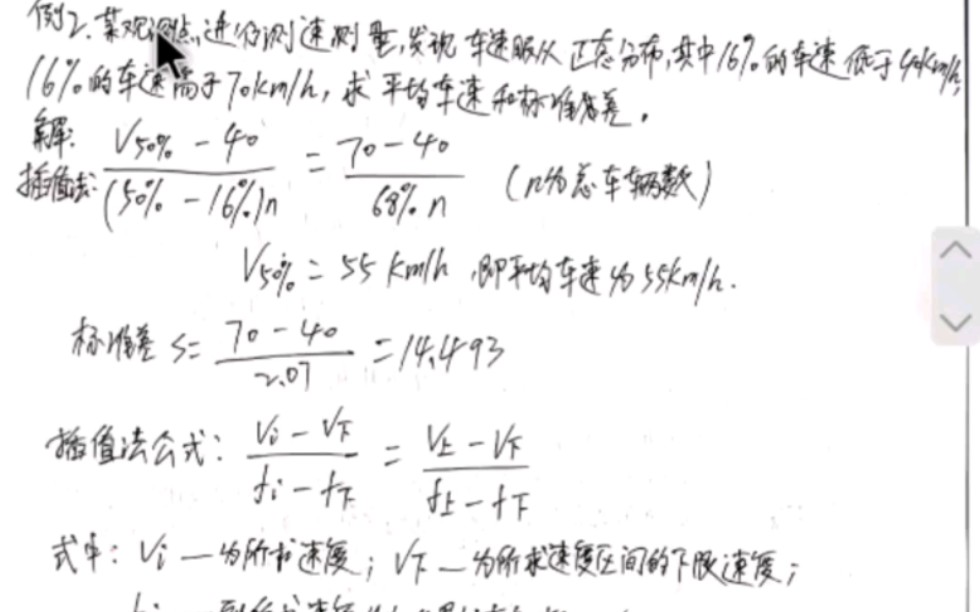 例2.某观测点,进行测速测量,发现车速服从正态分布,其中16%的车速低于40km/h,
16%的车速高于70km/h,求平均车速和标准离差。
解:
插值法: (V50% - 40)/((50% - 16%)n) = (70 - 40)/(68% n) (n为总车辆数)
V50% = 55 km/h,即平均车速为55km/h.
标准差 S = (70 - 40)/2.07 = 14.493
插值法公式: (Vi - V下)/(fi - f下) = (V上 - V下)/(f上 - f下)
式中: Vi — 为所求速度; V下 — 为所求速度区间的下限速度;